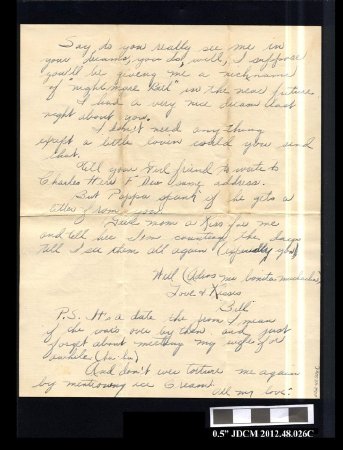 Say do you really see me in
your dreams, you do, well, I suppose
you'll be giving me a nickname
of nightmare "Bill" in the near future
I had a very nice dream last
night about you.
I don't need anything
except a little lovin could you send
that.
Tell your Girl friend to write to
Charles same address.
But Pappou if he gets a
letter from you.
Give mom a Kiss for me
and tell her I'm counting the days
till I see them all again (especially you)
Well (Adios me bonita muchacha)
Love & Kisses
"Bill"
P.S. It's a date the prom I mean
if the war's over by then, and just
forget about meeting my wife for
awhile (ha ha)
And don't ever torture me again
by mentioning ice Cream.
All my love.
0.5" JDCM 2012.48.026C